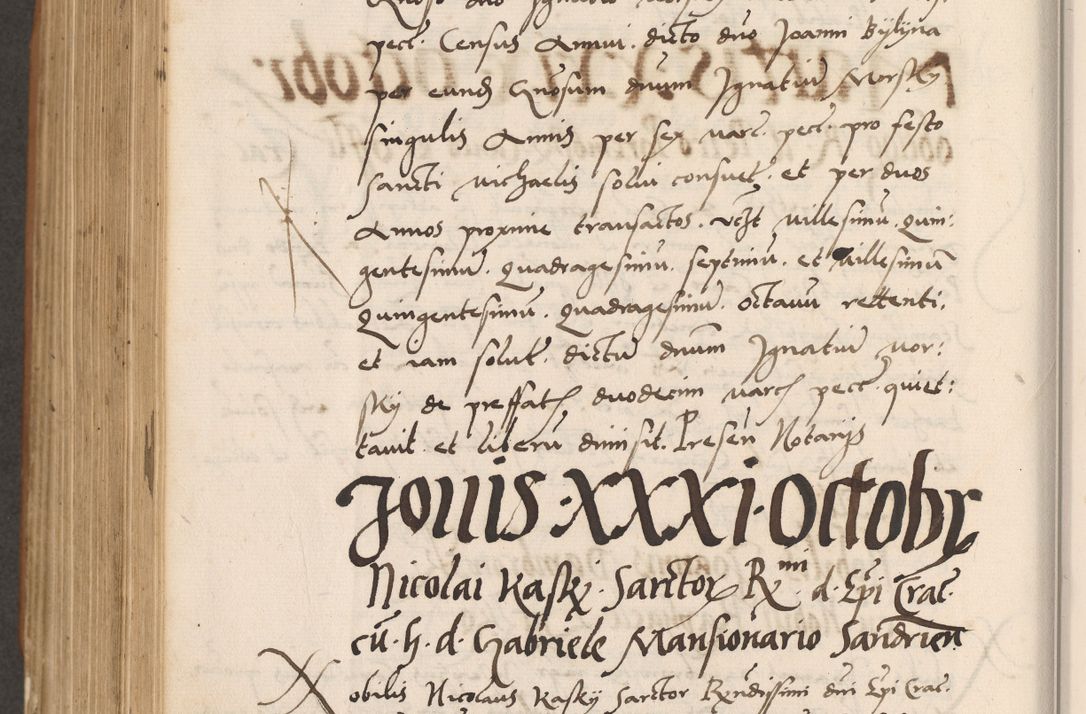 pecc. Census Annui. dicto dno Joanni Bylyna
per eund Gnosum dnum Ignatiu Morsky
singulis Annis per sex marc. pecc. pro festo
Sancti Michaelis solui consuet. et per duos
Annos proxime transactos. vcꝫt Millesimu. Quin:
gentesimu. Quadragesimu. septimu. et Millesimu
Quingentesimu. Quadragesimu. octauu rettenti.
et iam solut. dictu dnum Ignatiu Mor:
sky de preffatis duodecim marcis pecc. quiet:
tauit et liberu dimisit. Presen Notarijs
Jouis. XXXI. Octobr
Nicolai Kasky. Sartor Rmi d. Epi Crac.
cu. h. d. Gabriele Mansionario Sandrien
obilis Nicolaus Kasky Sartor Rxndissimi dni Epi Crac.